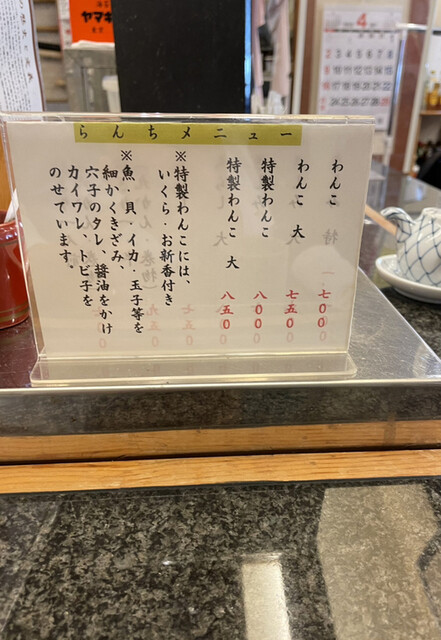 らんちメニュー
わんこ 七00
わんこ 大 七五0
特製わんこ 八00
特製わんこ 大 八五0
※特製わんこには、
いくら・お新香付き
※魚・貝・イカ・玉子等を
細かくきざみ、
穴子のタレ、醤油をかけ
カイワレ、トビ子を
のせています。
ヤマキ
4